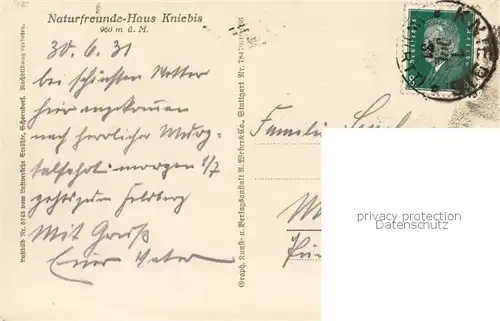 Naturfreunde-Haus Kniebis
960 m ü. M.
30.6.31
bei schönsten Wetter
hier angekommen
nach herrlicher Murg-
talfahrt. morgen 1/7
gehts zum Feldberg
Mit Gruß
Euer Vater
Luftbild Nr. 6748 vom Luftverkehr Strähle, Schorndorf. Nachbildung verboten.
Graph. Kunst- u. Verlagsanstalt: R. Weber & Co., Stuttgart Nr.
Familie
privacy protection
Datenschutz